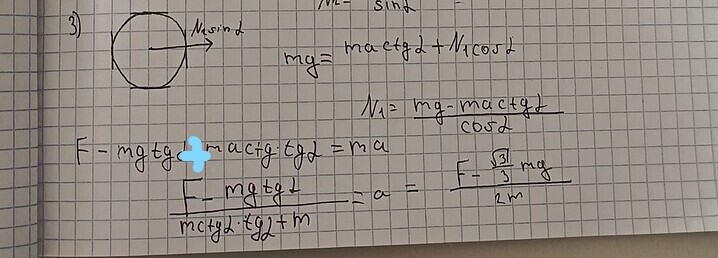 N2= sinα
3) N₁sinα
mg= mactgα+N₁cosα
N₁= mg-mactgα / cosα
F-mgtgα+mactg·tgα=ma
F-mgtgα / mctgα·tgα+m =a= F-√3/3 mg / 2m